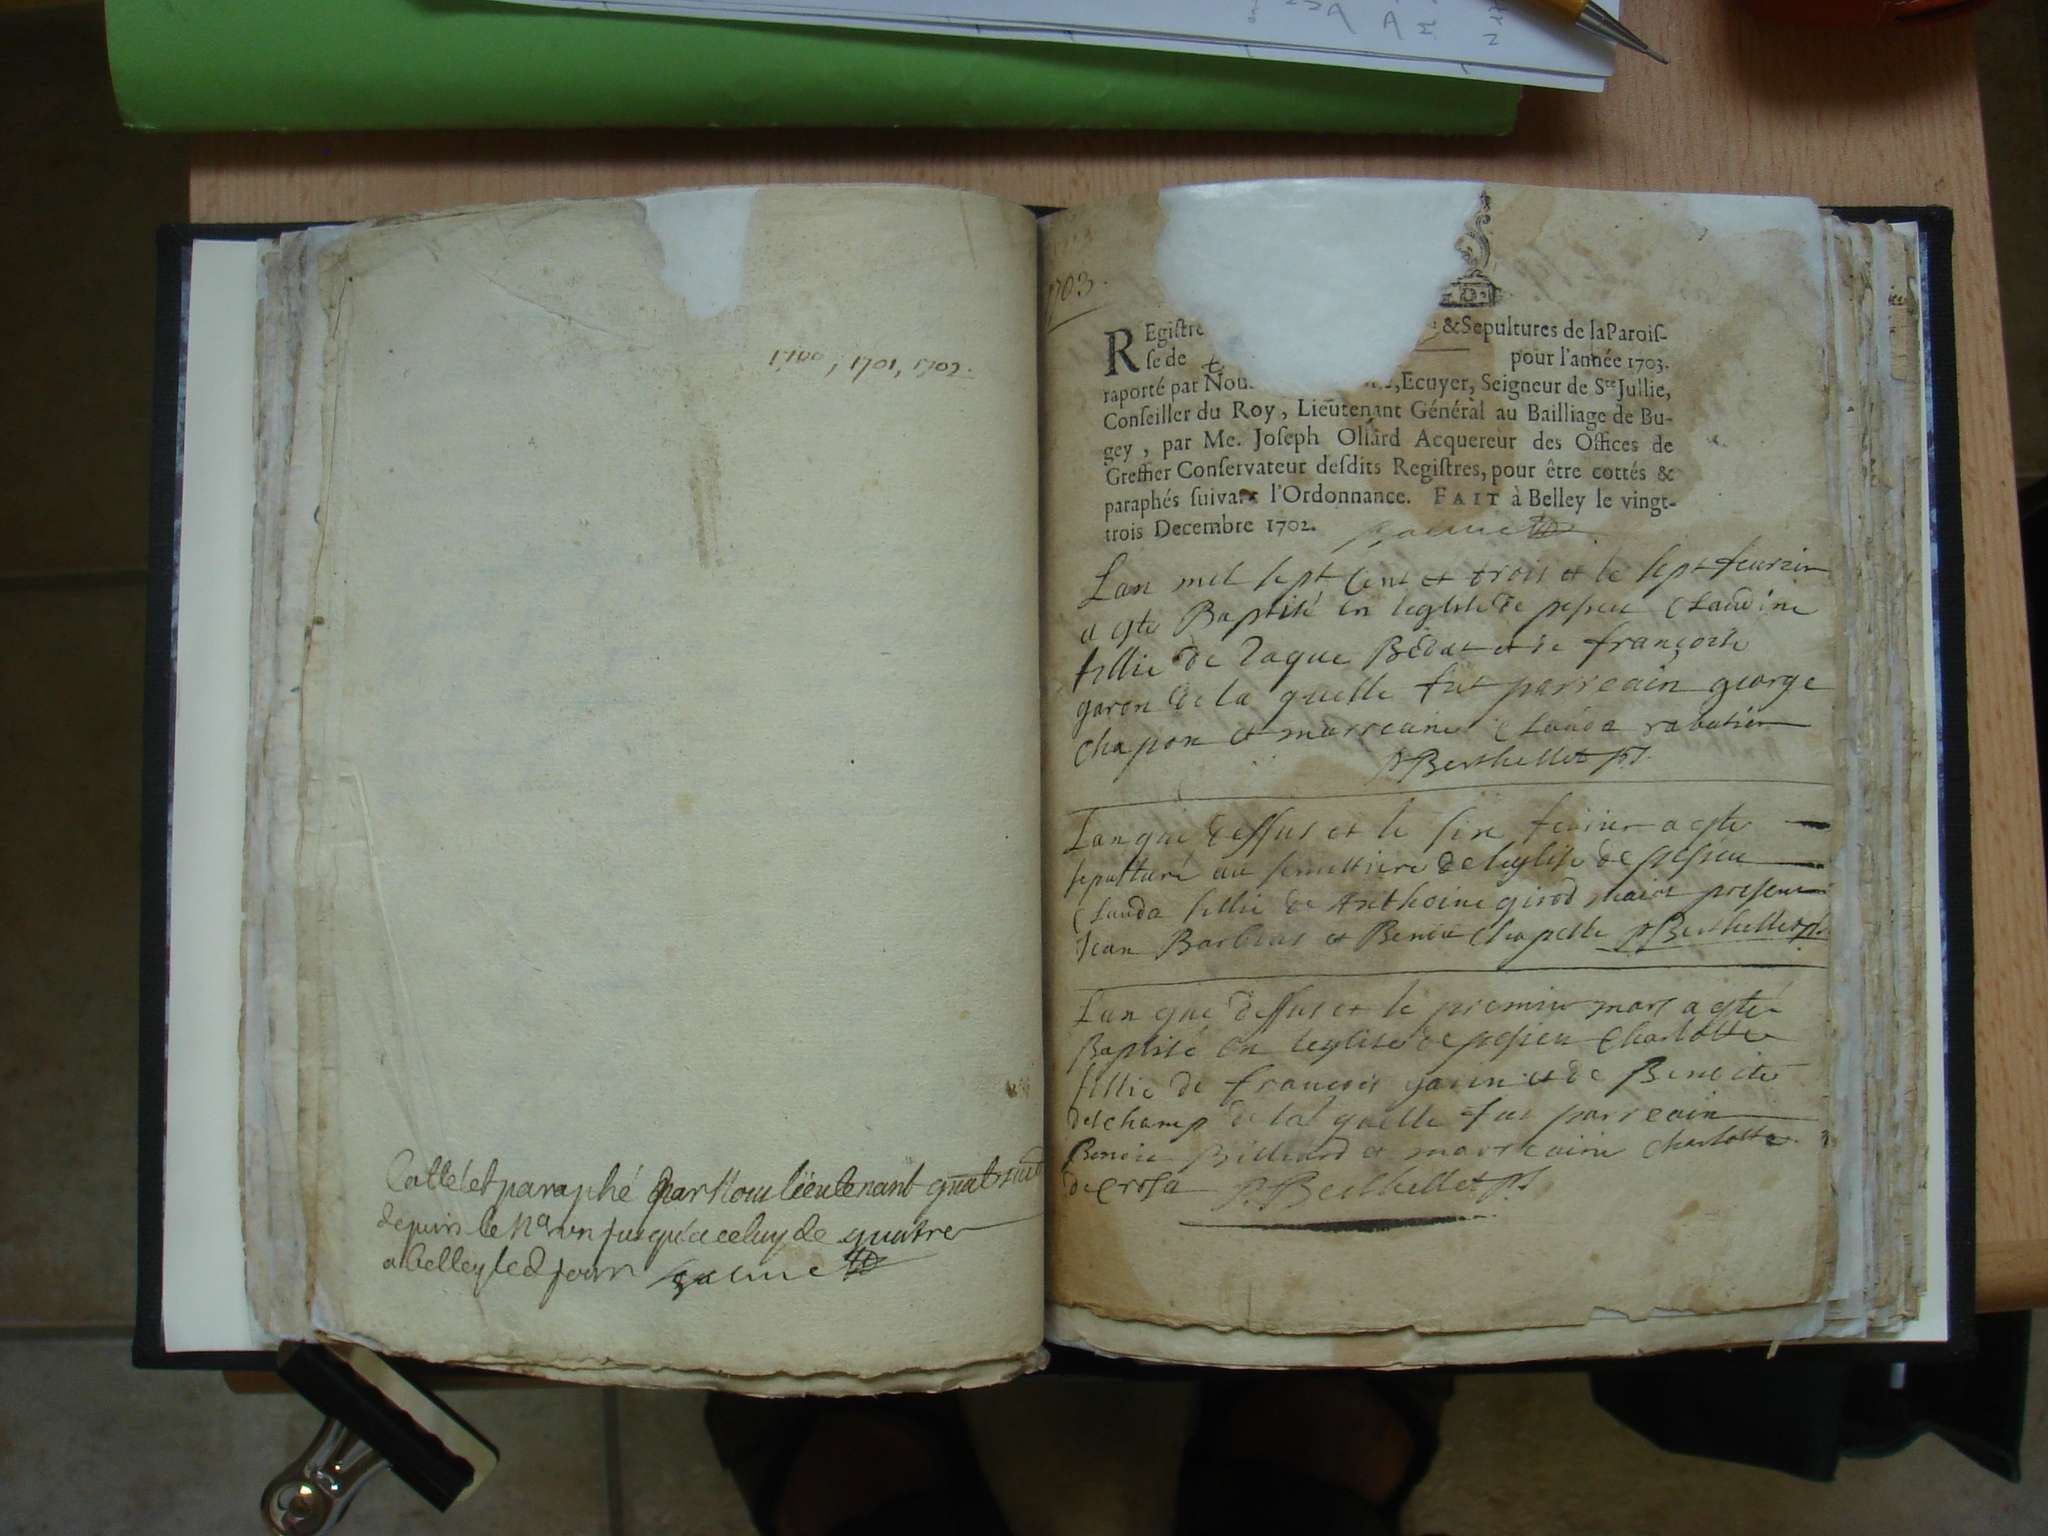 1700, 1701, 1702.
Cotté et paraphé par Nous lieutenant gñal susd
depuis le No un jusqu'a celuy de quatre
a belley led jour
1703.
REgistre & Sepultures de la Parois-
se de pour l'année 1703.
raporté par Nous ,Ecuyer, Seigneur de Ste Jullie,
Conseiller du Roy, Lieutenant Général au Bailliage de Bu-
gey, par Me. Joseph Oliard Acquereur des Offices de
Greffier Conservateur desdits Registres, pour être cottés &
paraphés suivant l'Ordonnance. FAIT à Belley le vingt-
trois Decembre 1702.
Lan mil sept cent et trois et le sept feurier
a esté Baptisé en leglise de pesieu Claudine
fillie de Jaque Bedat et de françoise
garon de la quelle fut parreain george
chapon et marreaine Clauda rabatier
p Berthellet ps
Lan que dessus et le six feurier a esté
sepulturé au semettiere de leglise de pesieu
Clauda fillie de Anthoine girod maior presens
Jean Barbeas et Benoit Chapelle p Berthellet ps
Lan que dessus et le premier mars a esté
Baptisé en leglise de pesieu Charlotte
fillie de françois garin et de Benoite
deschamp de la quelle fut parreain
Benoit Billiard et marreaine Charlotte
de Crosa p. Berthellet ps